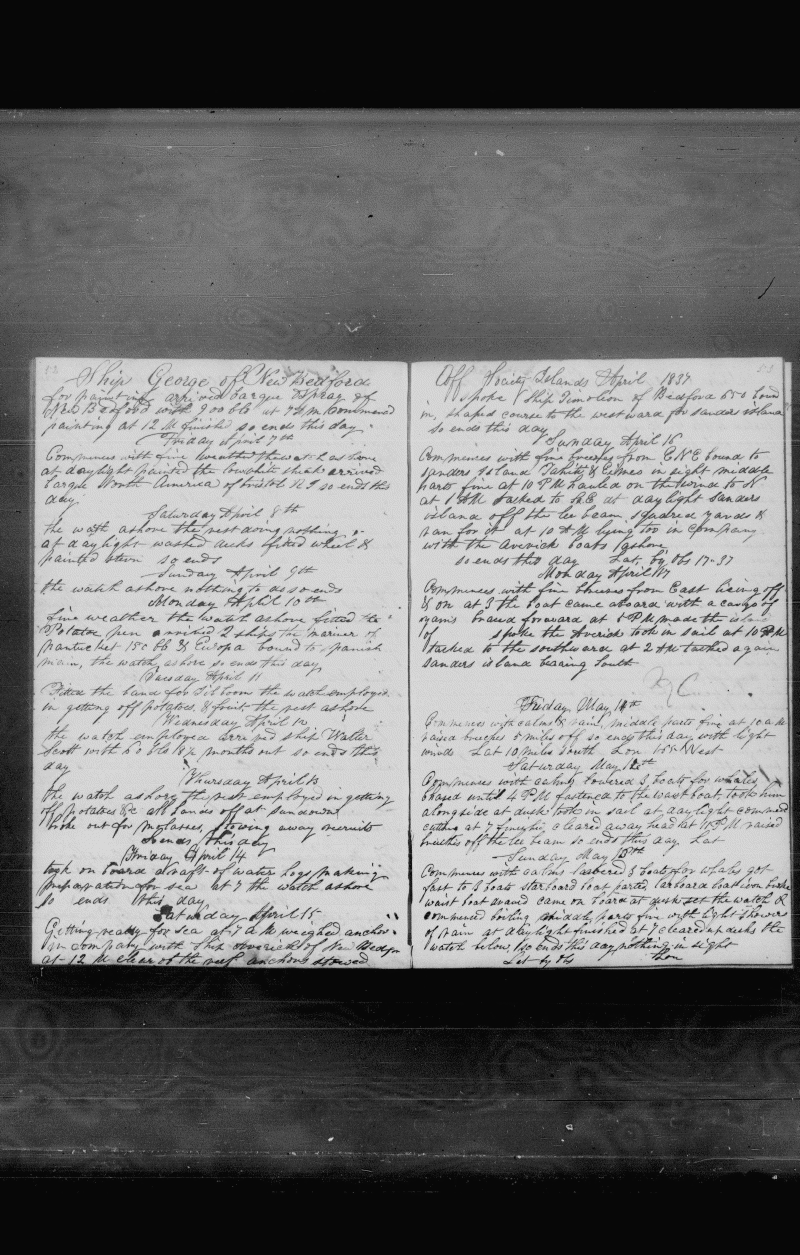 52
Ship George of New Bedford
for painting arrived barque Ospray of
New Bedford with 900 bbls at 7 AM commenced
painting at 12 M finished so ends this day
Friday April 7th
Commences with fine weather the watch ashore
at daylight painted the arrived
barque North America of bristol R I so ends this
day
Saturday April 8th
the wath ashore the rest doing nothing
at daylight washed decks fitted wheel &
painted so ends
Sunday April 9th
the watch ashore nothing to do so ends
Monday April 10th
fine weather the watch ashore fitted the
Potatoe pen arrived 2 ships the mariner of
nantucket 150 bb & Europa bound to spanish
main, the watch ashore so ends this day
Tuesday April 11
Fitted the band for Jib boom the watch employed
in getting off potatoes & fruit the rest ashore
Wednesday April 12
the watch employed arrived ship Walter
Scott with 60 bbls 18½ months out so ends this
day
Thursday April 13
the watch ashore the rest employed in getting
off potatoes &c all hands off at sundown
broke out for molasses, stowing away recruits
so ends this day
Friday April 14
took on board a raft of water hogs making
preparation for sea at 7 the watch ashore
so ends this day
Saturday April 15
Getting ready for sea at 7 A M weighed anchor
in compaty with Ship Averick of New Bedford
at 12 M clear of the reef anchors stowed
53
Off Society Islands April 1837
spoke Ship Timolion of Bedford 650 bound
in, shaped course to the westward for sanders island
so ends this day
Sunday April 16
Commences with fine breezes from ENE bound to
sanders Island Tahiti & Eimeo in sight middle
parts fine at 10 PM hauled on the wind to N
at 1 AM tacked to S.E at daylight sanders
island off the lee beam squared yards &
ran for it at 10 AM lying too in company
with the Averick boats ashore
so ends this day Lat by Obs 17-37
Monday April 17
Commences with fine breeses from East lieing off
& on at 3 the boat came aboard with a cargo of
yams braced forward at 5 PM made the island
of spoke the Averick took in sail at 10 PM
tacked to the southward at 2 AM tacked again
sanders island bearing South
Friday May 11th
Commences with calms & rain, middle parts fine at 10 a m
raised breeches 5 miles off so ends this day with light
winds Lat 10 miles South Lon 155 West
Saturday May 12th
Commences with calms lowered 3 boats for whales
chased until 4 PM fastened to the wast boat took him
alongside at dusk took in sail at daylight commenced
cutting at 7 finished, cleared away head at 11 PM raised
breeches off the lee beam so ends this day Lat
Sunday May 13th
Commences with calms lowered 3 boats for whales got
fast to 3 boats starboard boat parted larboard boat iron broke
waist boat saved came on board at dusk set the watch &
commenced boiling middle parts fine with light showers
of rain at daylight finished at 7 cleared up decks the
watch below, so ends this day nothing in sight
Lat by Obs Lon